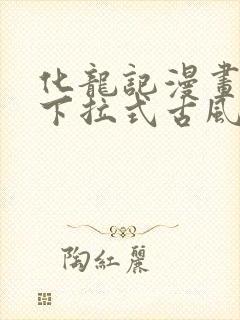 化龍記漫畫
下拉式古風
陶紅麗